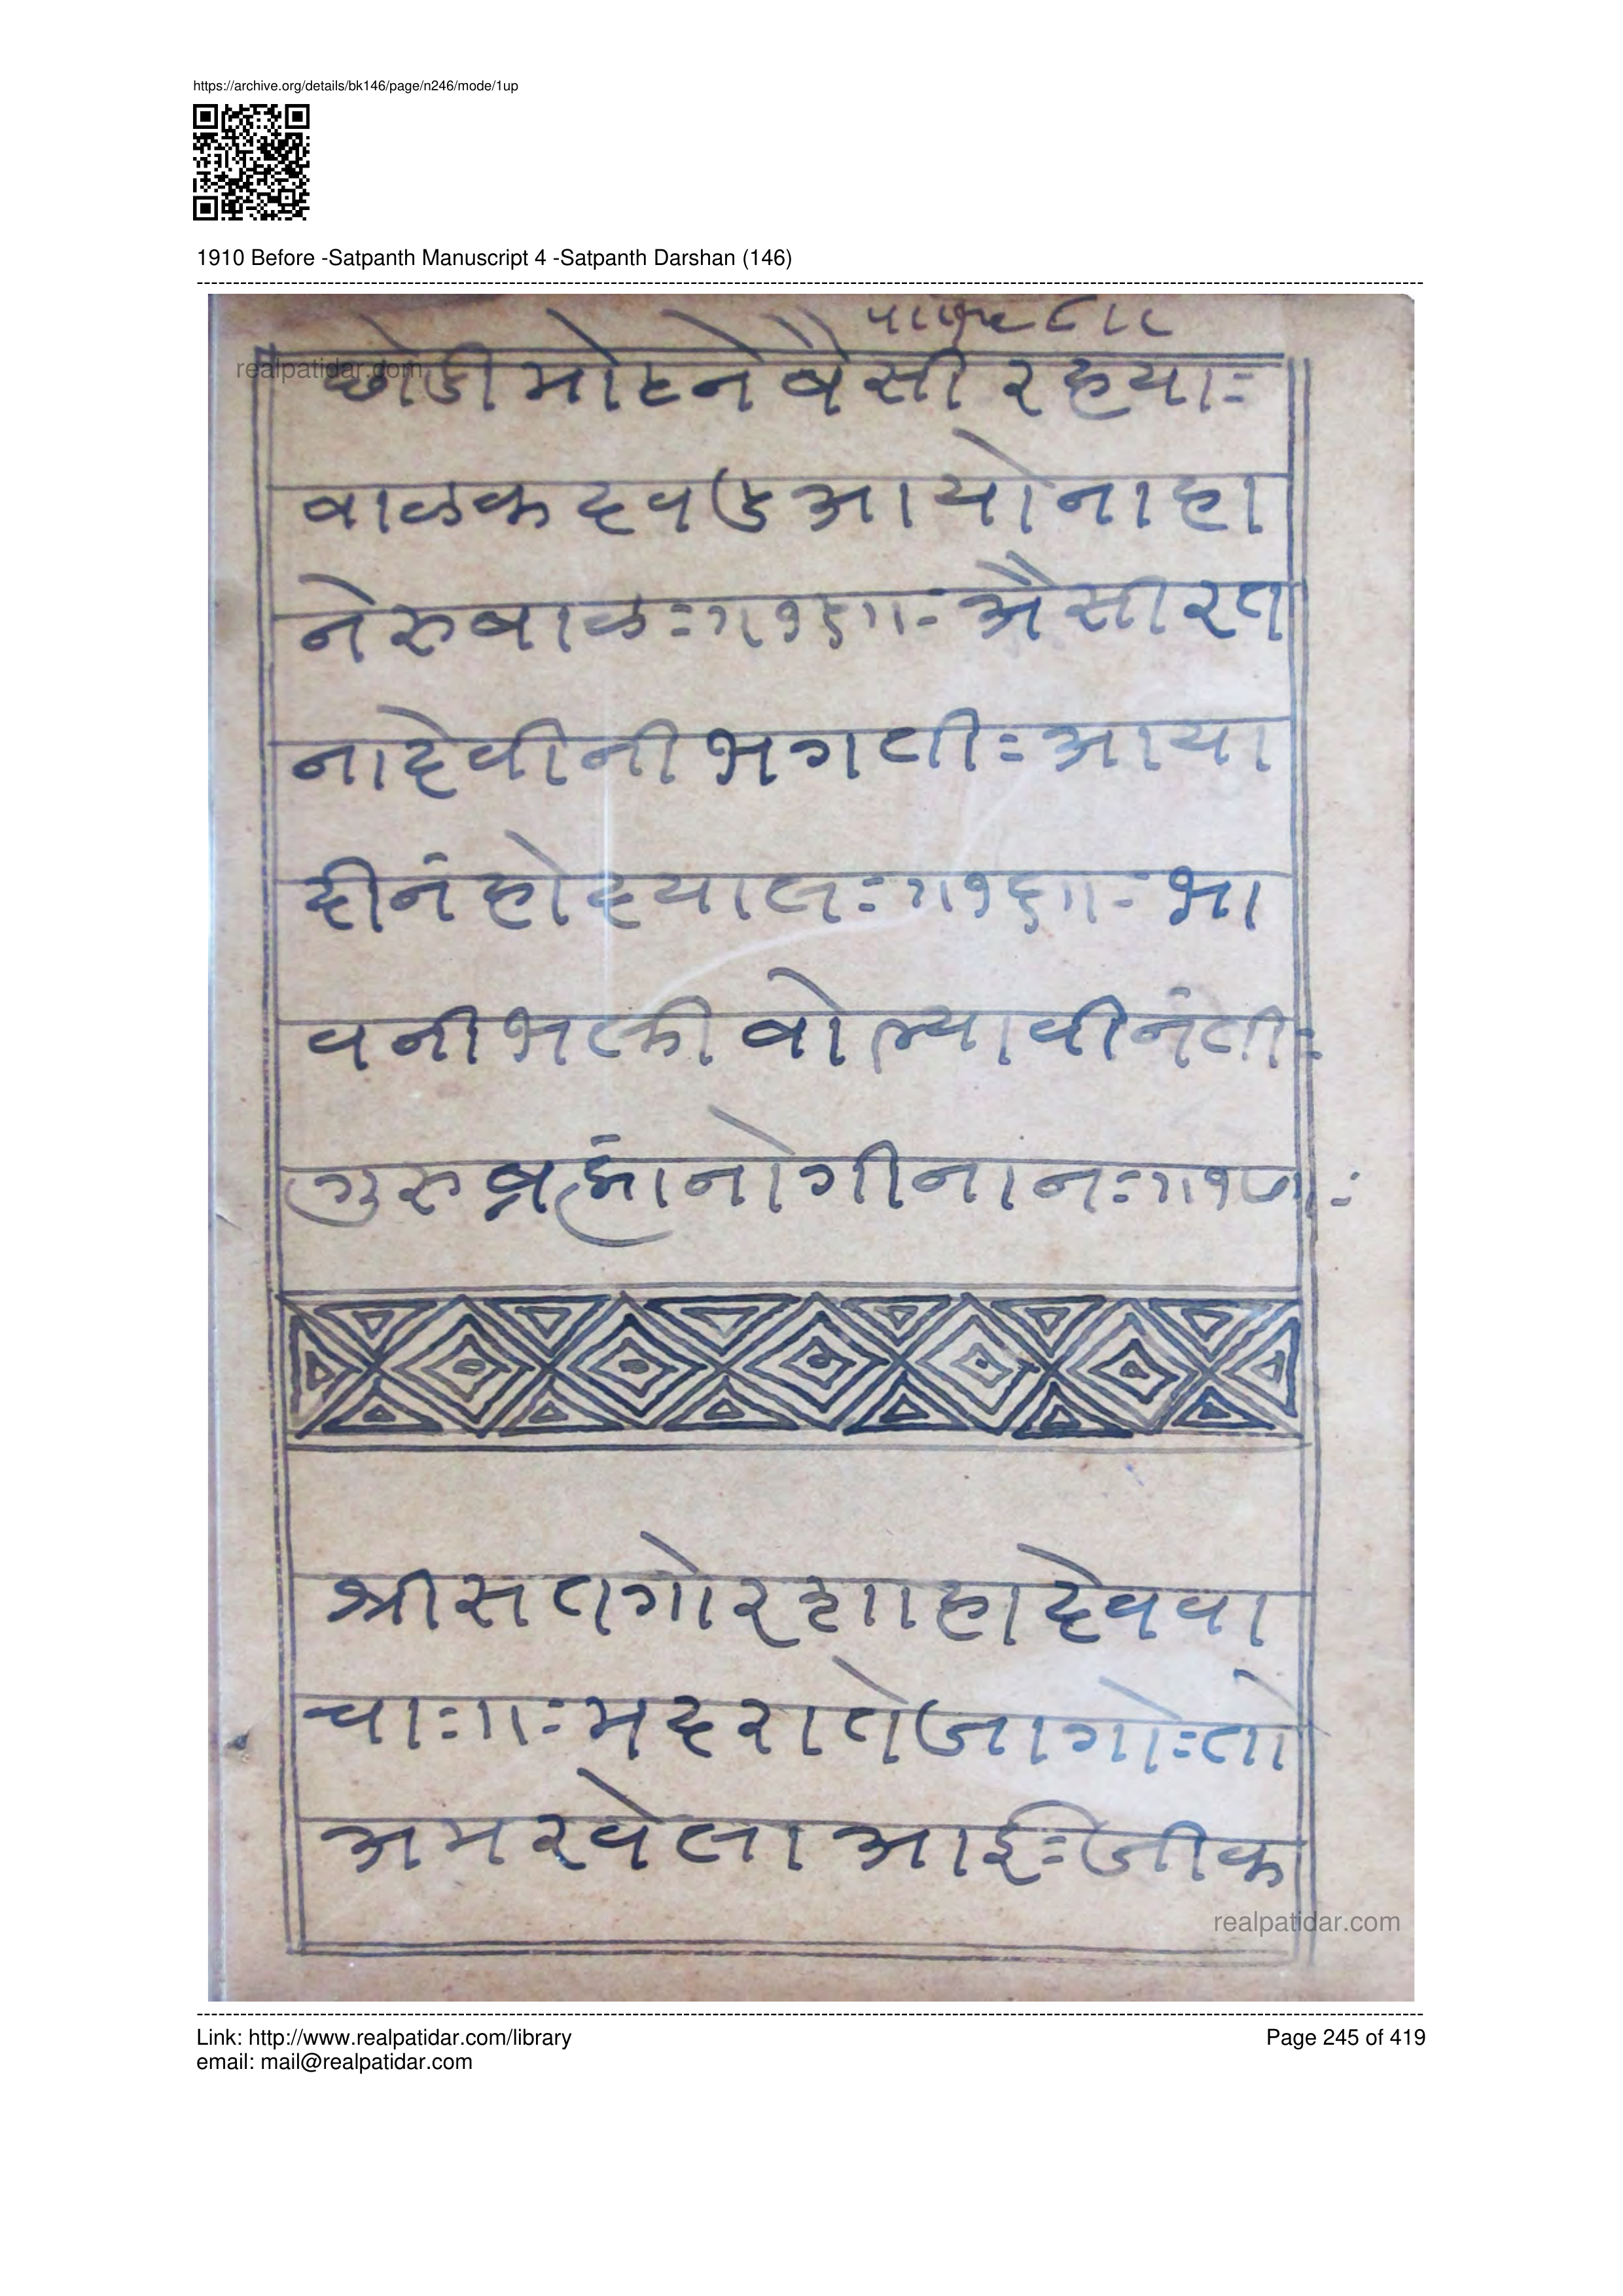 https://archive.org/details/bk146/page/n246/mode/1up
1910 Before -Satpanth Manuscript 4 -Satpanth Darshan (146)
realpatidar.com
छोडी मोहने बैसी रहया=
बाळक दवड आयो नाहा
नेरुबाळ=॥१५॥= अैसी रत
ना देवीनी भगती= आया
दीनं हो दयाल=॥१६॥= भा
वनी भक्ती बोल्या वीनंती=
गुरु ब्रह्मांनो गीनान=॥१७॥=
श्री सतगोर शाहा देव वा
चा=॥= मदराते जागो= तो
अमर वेला आई= जी क
realpatidar.com
Link: http://www.realpatidar.com/library
Page 245 of 419
email: mail@realpatidar.com